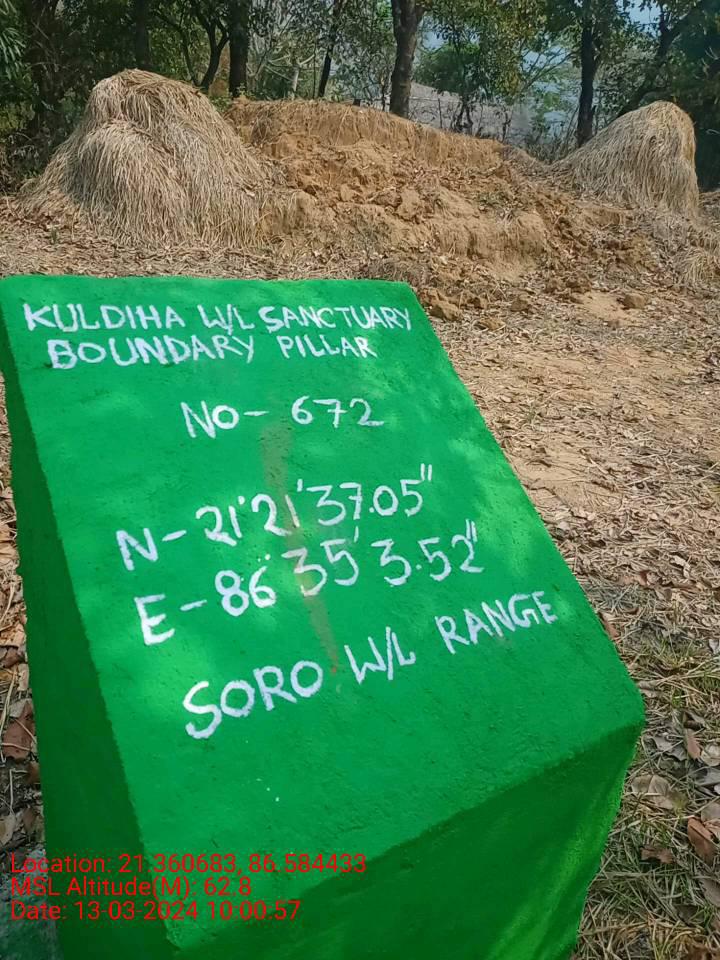 KULDIHA W/L SANCTUARY
BOUNDARY PILLAR
NO- 672
N- 21°21'37.05"
E- 86°35'3.52"
SORO W/L RANGE
Location: 21.360683, 86.584433
MSL Altitude(M): 62.8
Date: 13-03-2024 10:00:57